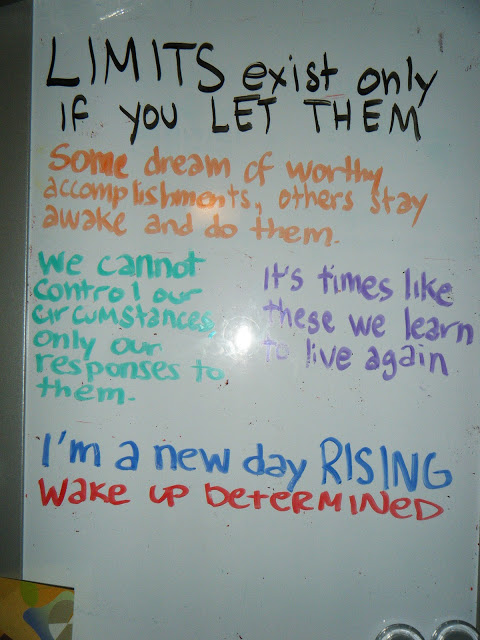 LIMITS exist only
IF YOU LET THEM
Some dream of worthy
accomplishments, others stay
awake and do them.
We cannot
control our
circumstances,
only our
responses to
them.
It's times like
these we learn
to live again
I'm a new day RISING
Wake up DeterMINeD